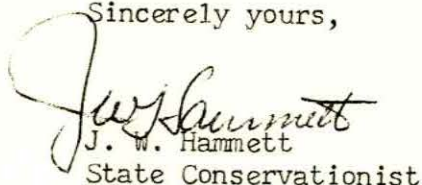 Sincerely yours,
J W Hammett
J. W. Hammett
State Conservationist